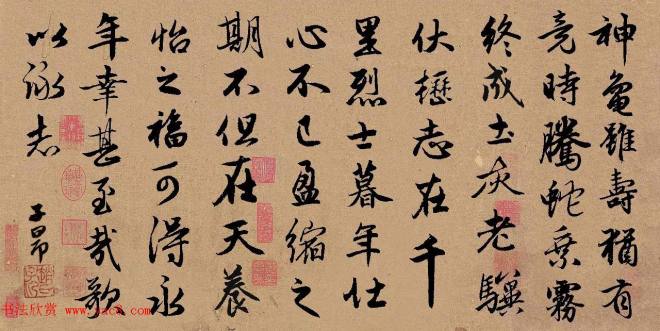 神龜雖壽猶有
竟時騰蛇乘霧
終成土灰老驥
伏櫪志在千
里烈士暮年壯
心不已盈縮之
期不但在天養
怡之福可得永
年幸甚至哉歌
以詠志
子昂
书法欣赏 www.yac8.com